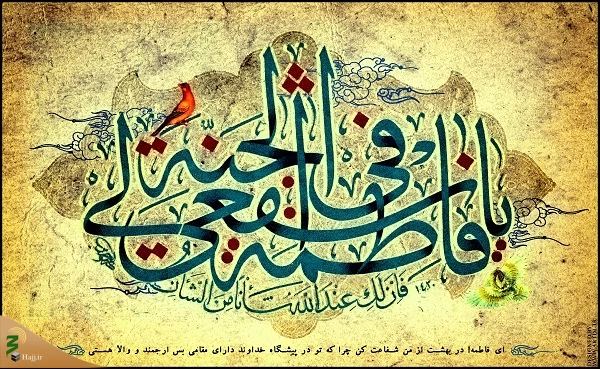 یا فاطمة اشفعی لی فی الجنة
فان لك عند الله شأنا من الشأن
۱۴۲۰
ای فاطمه! در بهشت از من شفاعت کن چرا که تو در پیشگاه خداوند دارای مقامی بس ارجمند و والا هستی
Hajj.ir